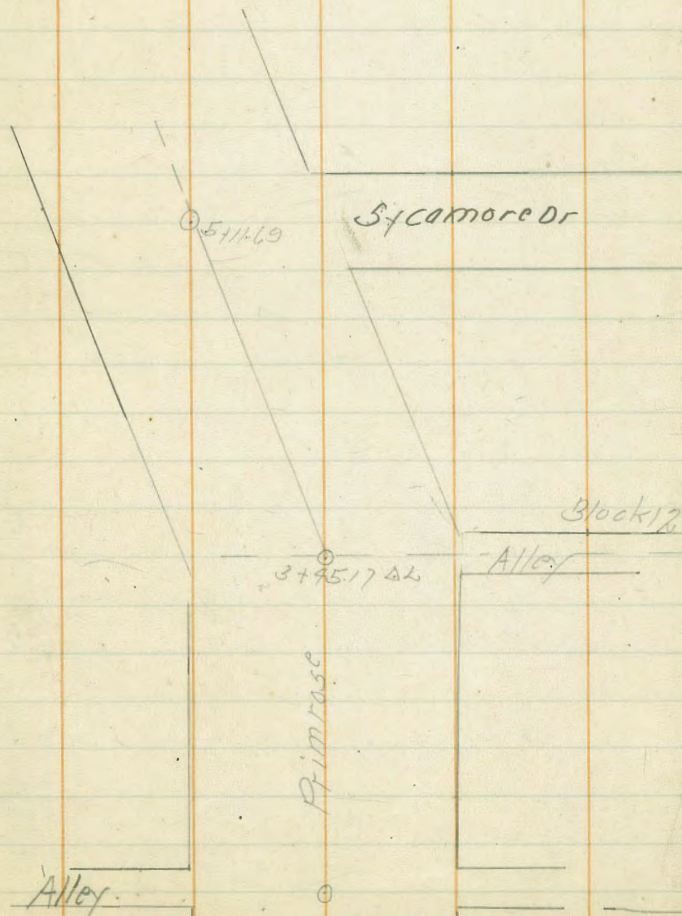 Sycamore Dr
5+11.69
Block 12
Alley
3+95.17 ΔL
Primrose
Alley